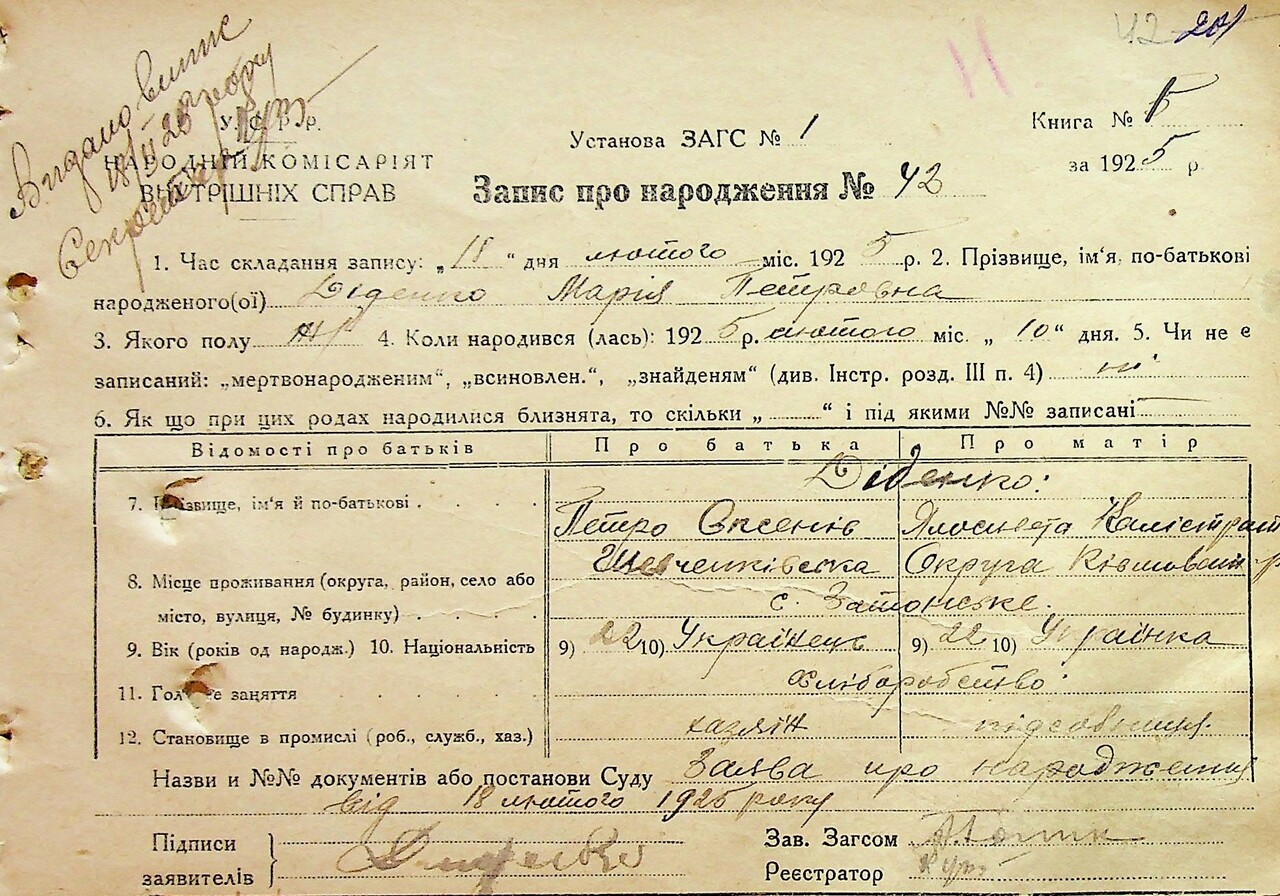 42 201
Н.
Видано витяг
18/II 28 року
Секретар
У.С.Р.Р.
НАРОДНІЙ КОМІСАРІЯТ
ВНУТРІШНІХ СПРАВ
Установа ЗАГС № 1
Книга №
за 1925 р.
Запис про народження № 42
1. Час складання запису: „18“ дня лютого міс. 1925 р. 2. Прізвище, ім'я, по-батькові
народженого(ої) Діденко Марія Петровна
3. Якого полу жін 4. Коли народився (лась): 1925 р. лютого міс. „10“ дня. 5. Чи не є
записаний: „мертвонародженим“, „всиновлен.“, „знайденям“ (див. Інстр. розд. III п. 4) ні
6. Як що при цих родах народилися близнята, то скільки „ “ і під якими №№ записані
Відомості про батьків Про батька Про матір
Діденко:
7. Прізвище, ім'я й по-батькові
Петро Оксенів Ялосивета Калістрат
8. Місце проживання (округа, район, село або
місто, вулиця, № будинку)
Шевченківська Округа
с. Затонське.
9. Вік (років од народж.) 10. Національність 9) 22 10) Українець 9) 22 10) Українка
11. Головне заняття Хліборобство
12. Становище в промислі (роб., служб., хаз.) хазяїн підсобниця.
Назви и №№ документів або постанови Суду Заява про народження
від 18 лютого 1925 року
Підписи
заявителів
Зав. Загсом
Реєстратор